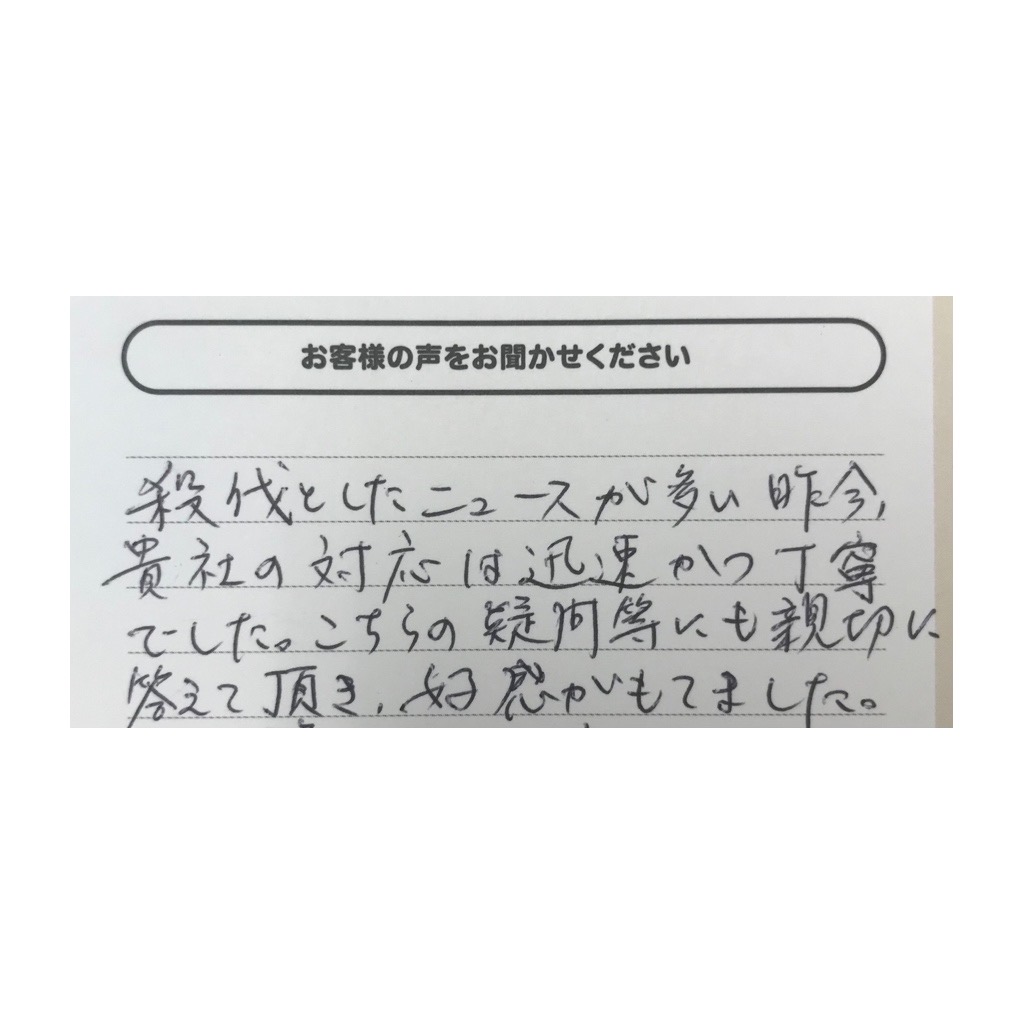 お客様の声をお聞かせください
殺伐としたニュースが多い昨今,
貴社の対応は迅速かつ丁寧
でした。こちらの疑問等にも親切に
答えて頂き,好感がもてました。